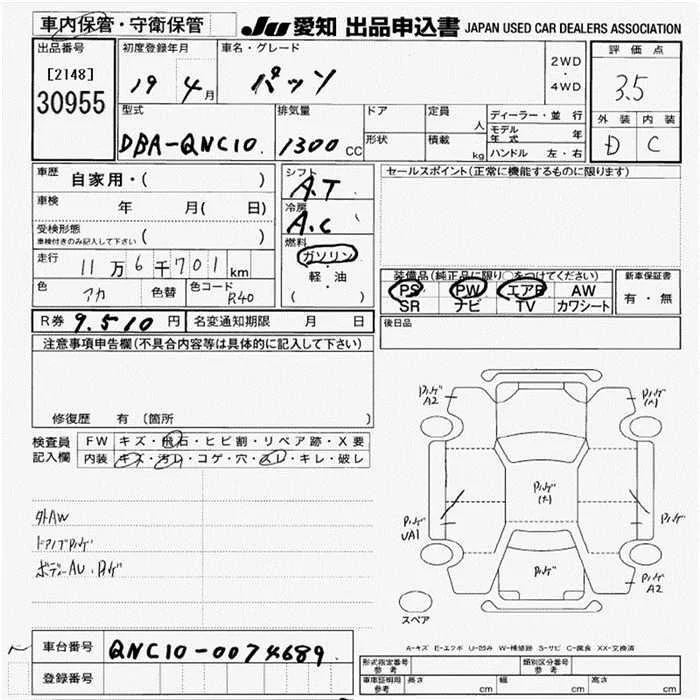 車内保管・守衛保管
JU 愛知 出品申込書 JAPAN USED CAR DEALERS ASSOCIATION
出品番号
[2148]
30955
初度登録年月
19 4月
車名・グレード
パッソ
2WD
・
4WD
評価点
3.5
外装 内装
D C
型式
DBA-QNC10
排気量
1300CC
ドア
形状
定員
人
積載
kg
ディーラー・並行
モデル年式 年
ハンドル 左・右
車歴
自家用・( )
車検
年 月( 日)
受検形態
車検付きのみ記入して下さい ( )
走行
11万6千701km
色
アカ
色替
色コード
R40
シフト
A.T
冷房
A.C
燃料
ガソリン
軽・油
( )
セールスポイント(正常に機能するものに限ります)
装備品(純正品に限り○をつけてください)
PS PW エアB AW
SR ナビ TV カワシート
新車保証書
有・無
R券 9.510円 名変通知期限 月 日
後日品
注意事項申告欄(不具合内容等は具体的に記入して下さい)
修復歴 有 (箇所 )
検査員
記入欄
FW キズ・飛石・ヒビ割・リペア跡・X要
内装 キズ・汚レ・コゲ・穴・スレ・キレ・破レ
外AW
ボデーAU・
A2
UA1
A2
スペア
A-キズ E-エクボ U-凹み W-補修跡 S-サビ C-腐食 XX-交換済
車台番号 QNC10-0074689
登録番号
形式指定番号
参考
類別区分番号
参考
車車証明用
参考
長さ cm 幅 cm 高さ cm